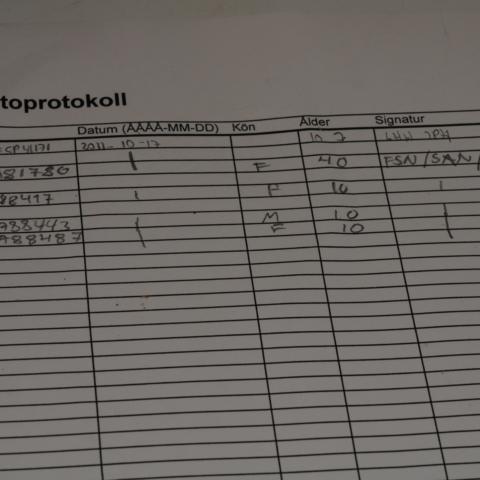 toprotokoll
Datum (ÅÅÅÅ-MM-DD) Kön Ålder Signatur
2011-10-17
81780 F 40 FSN/SAN
8417 F 10
88443 M 10
88487 F 10